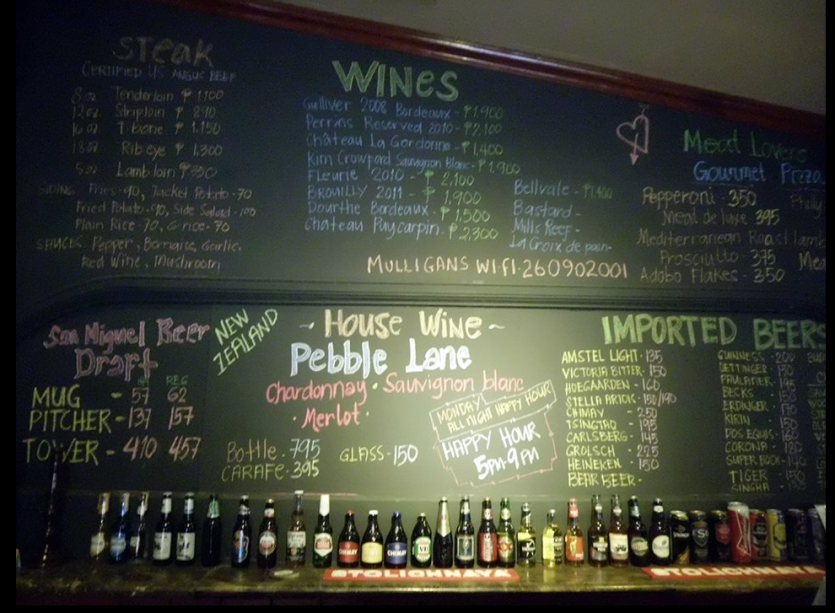 Steak
Certified US Angus Beef
Tenderloin ₱ 1100
Striploin ₱ 890
T-bone ₱ 1.150
Rib eye ₱ 1,300
Lamb loin ₱
Fries-90, Jacket Potato-70
Fried Potato-90, Side Salad-100
Plain Rice 70, G-rice-70
Sauces: Pepper, Bernaise, Garlic,
Red Wine, Mushroom
Wines
Gulliver 2008 Bordeaux - ₱1,900
Perrins Reserved 2010 - ₱2,100
Château La Gordonne - ₱1,400
Kim Crowford Sauvignon Blanc - ₱1,900
Fleurie 2010 - ₱ 2,100
Brouilly 2011 - ₱ 1,900
Dourthe Bordeaux - ₱ 1,500
Chateau Puycarpin - ₱ 2,300
Bellvale - ₱1,400
Bastard -
Mills Reef -
La Croix de pain-
Mulligans WIFI-260902001
Meat Lovers
Gourmet Pizza
Pepperoni . 350 Philly
Meal de luxe 395
Mediterranean Roast lamb
Prosciutto - 375 Mea
Adobo Flakes - 350
San Miguel Beer
Draft
REG
MUG - 57 62
PITCHER - 137 157
TOWER - 410 457
NEW
ZEALAND
~ House Wine ~
Pebble Lane
Chardonnay • Sauvignon blanc
• Merlot •
Bottle . 795
CARAFE . 395
GLASS - 150
MONDAY
ALL NIGHT HAPPY HOUR
HAPPY HOUR
5PM-9PM
IMPORTED BEERS
AMSTEL LIGHT - 135
VICTORIA BITTER - 150
HOEGAARDEN - 160
STELLA ARTOIS - 150/190
CHIMAY - 250
TSINGTAO - 195
CARLSBERG - 145
GROLSCH - 225
HEINEKEN - 150
BEAR BEER -
GUINNESS - 200
OETTINGER
PAULANER
BECKS
ERDINGER
KIRIN
DOS EQUIS
CORONA
SUPER BOCK - 140
TIGER
SINGHA
STOLICHNAYA
STOLICHNAYA